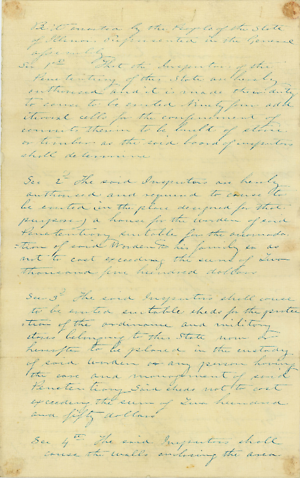 Be it enacted by the People of the State
of Illinois Represented in the General
assembly
Sec 1st That the Inspectors of the
Penitentiary of this State are hereby
authorised and it is made their duty
to cause to be erected Ninety five add
itional cells for the confinement of
convicts them to be built of stone
or timber as the said board of inspectors
shall determine
Sec 2d The said Inspectors are hereby
authorised and required to cause to
be erected in the place designed for that
purpose, a house for the warden of said
Penitentiary suitable for the accomoda
tion of said Warden & his family so as
not to cost exceeding the sum of Two
thousand five hundred dollars
Sec 3d The said Inspectors shall cause
to be erected suitable sheds for the protec
tion of the ordinance and military
stores belonging to this State now or
hereafter to be placed in the custody
of said warden or any person having
the care and management of said
Penitentiary Said sheds not to cost
exceeding the sum of Two hundred
and fifty dollars
Sec 4th The said Inspectors shall
cause the walls enclosing the area